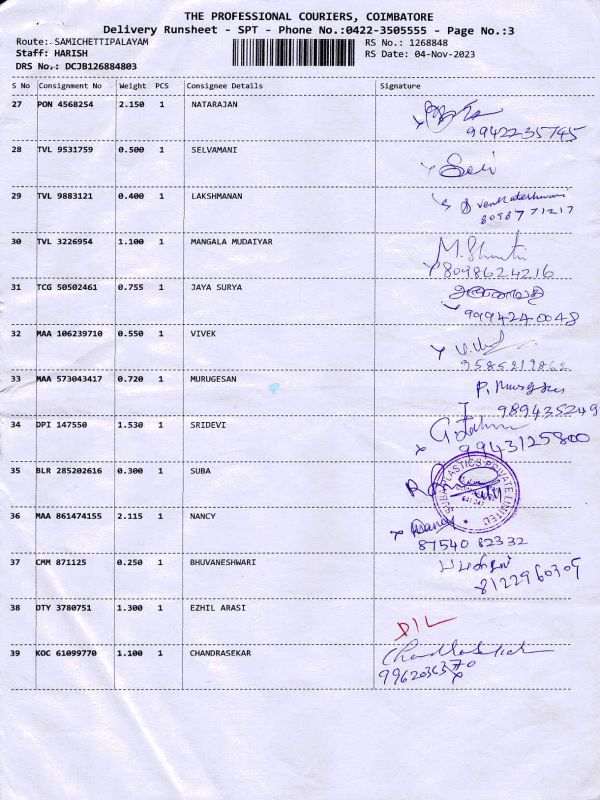 THE PROFESSIONAL COURIERS, COIMBATORE
Delivery Runsheet - SPT - Phone No.:0422-3505555 - Page No.:3
Route: SAMICHETTIPALAYAM RS No.: 1268848
Staff: HARISH RS Date: 04-Nov-2023
DRS No.: DCJB126884803
S No Consignment No Weight PCS Consignee Details Signature
27 PON 4568254 2.150 1 NATARAJAN
9942235745
28 TVL 9531759 0.500 1 SELVAMANI
Selvi
29 TVL 9883121 0.400 1 LAKSHMANAN
8098771217
30 TVL 3226954 1.100 1 MANGALA MUDAIYAR
8098624216
31 TCG 50502461 0.755 1 JAYA SURYA
9994240048
32 MAA 106239710 0.550 1 VIVEK
9585219862
33 MAA 573043417 0.720 1 MURUGESAN
989435249
34 DPI 147550 1.530 1 SRIDEVI
9943125800
35 BLR 285202616 0.300 1 SUBA
SUBA PLASTICS PRIVATE LIMITED
36 MAA 861474155 2.115 1 NANCY
Nancy
87540 82332
37 CMM 871125 0.250 1 BHUVANESHWARI
8122960309
38 OTY 3780751 1.300 1 EZHIL ARASI
D/L
39 KOC 61099770 1.100 1 CHANDRASEKAR
9962036370